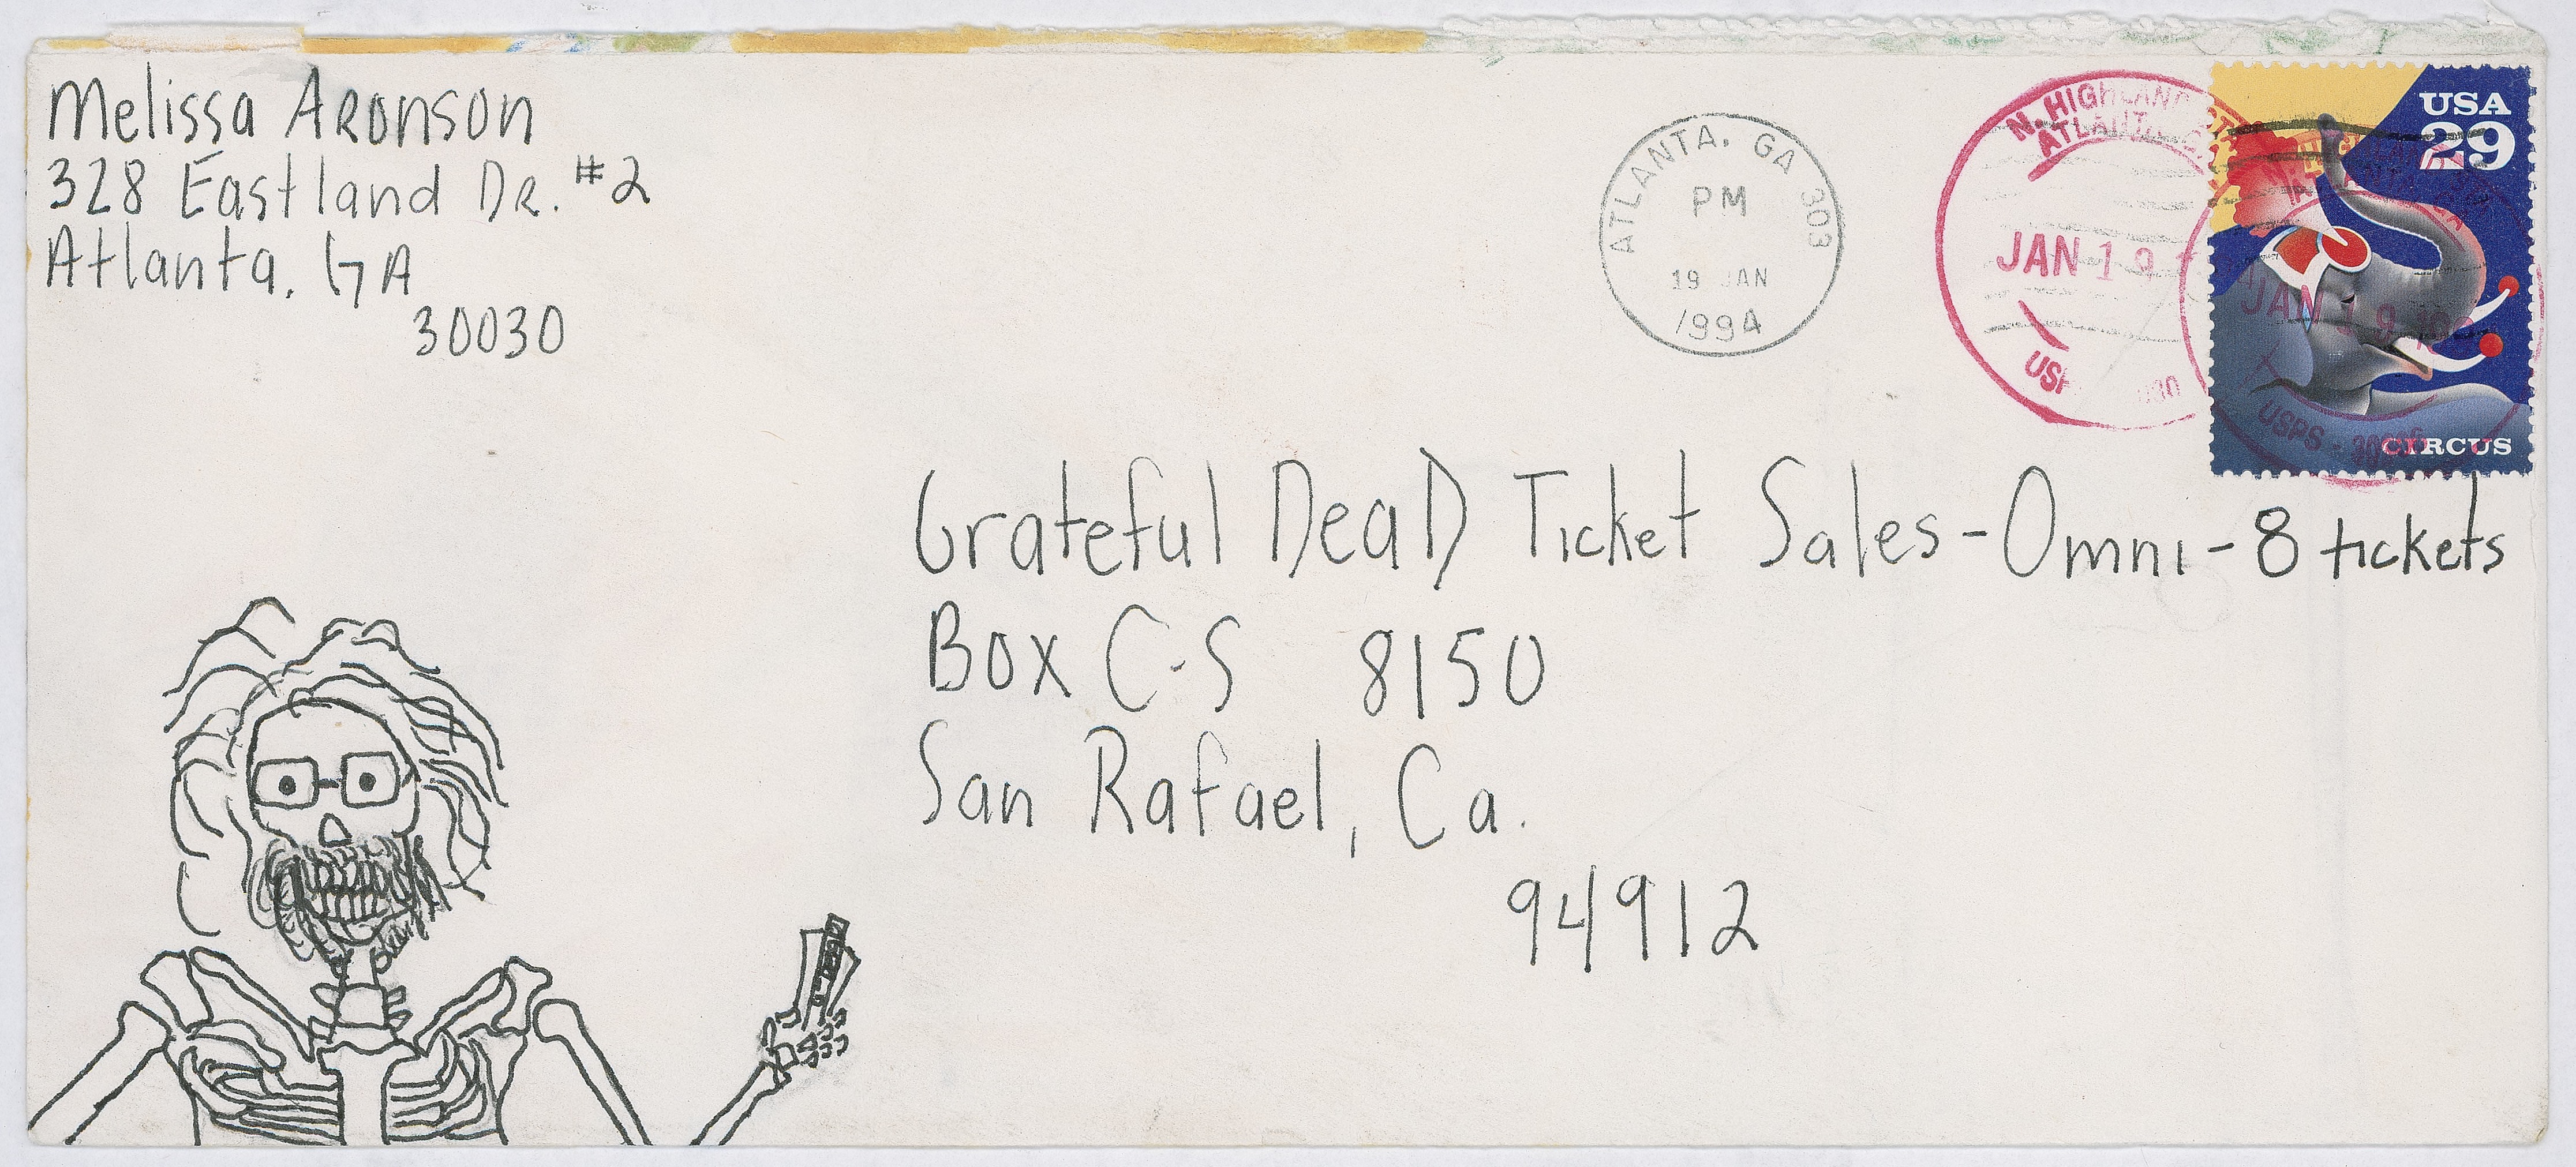 Melissa Aronson
328 Eastland Dr. #2
Atlanta, GA
30030
ATLANTA, GA 303
PM
19 JAN
1994
N. HIGHLAND
ATLANTA
JAN 19
USA
29
JAN 19
USPS
CIRCUS
Grateful DeaD Ticket Sales-Omni-8 tickets
Box C-S 8150
San Rafael, Ca.
94912